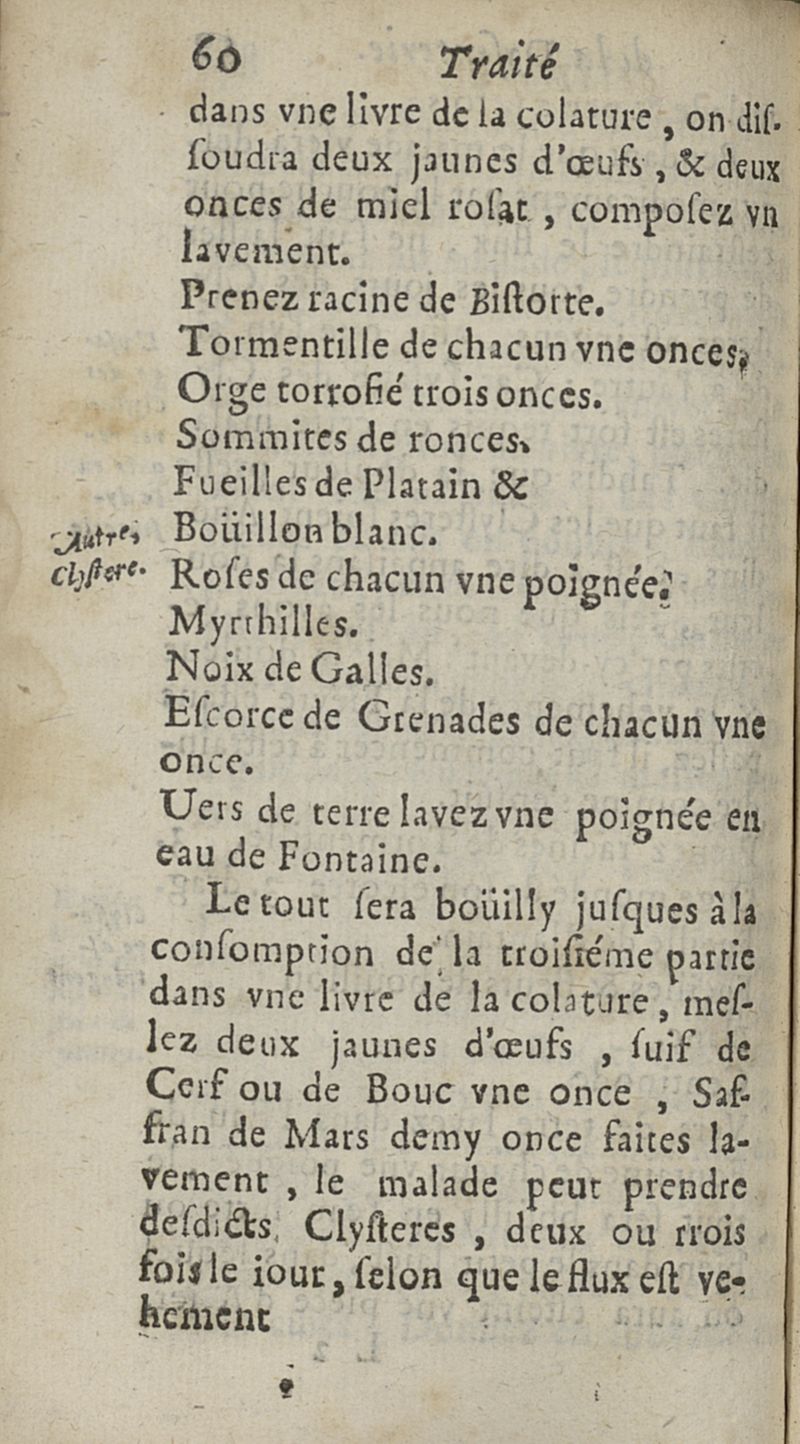 60 Traité
dans vne livre de la colature, on diſ-
ſoudra deux jaunes d'œufs, & deux
onces de miel roſat, compoſez vn
lavement.
Prenez racine de Biſtorte.
Tormentille de chacun vne onces,
Orge torrofié trois onces.
Sommites de ronces,
Fueilles de Platain &
Boüillon blanc.
Autre,
clyſtere.
Roſes de chacun vne poignée.
Myrthilles.
Noix de Galles.
Eſcorce de Grenades de chacun vne
once.
Uers de terre lavez vne poignée en
eau de Fontaine.
Le tout ſera boüilly juſques à la
conſomption de la troiſiéme partie
dans vne livre de la colature, meſ-
lez deux jaunes d'œufs, ſuif de
Cerf ou de Bouc vne once, Saf-
fran de Mars demy once faites la-
vement, le malade peut prendre
deſdicts, Clyſteres, deux ou rrois
fois le iour, ſelon que le flux eſt ve-
hement